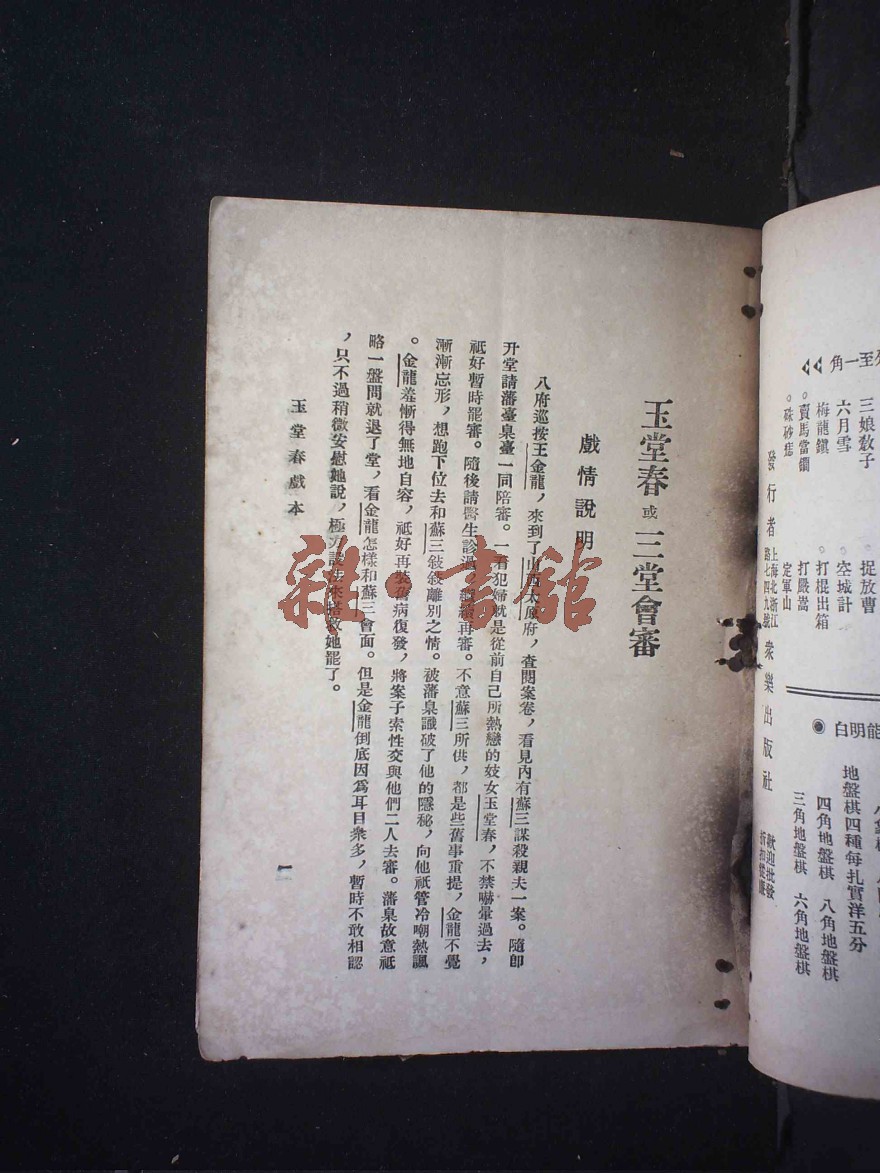 玉堂春 或 三堂會審
戲情說明
八府巡按王金龍，來到了山西太原府，查閱案卷，看見內有蘇三謀殺親夫一案。隨卽
升堂請藩臺臬臺一同陪審。一看犯婦就是從前自己所熱戀的妓女玉堂春，不禁嚇暈過去，
祇好暫時罷審。隨後請醫生診過，繼續再審。不意蘇三所供，都是些舊事重提，金龍不覺
漸漸忘形，想跑下位去和蘇三敍敍離別之情。被藩臬識破了他的隱秘，向他祇管冷嘲熱諷
。金龍羞慚得無地自容，祇好再裝舊病復發，將案子索性交與他們二人去審。藩臬故意祇
略一盤問就退了堂，看金龍怎樣和蘇三會面。但是金龍倒底因爲耳目衆多，暫時不敢相認
，只不過稍微安慰她說，極力設法來搭救她罷了。
玉堂春戲本
一
雜·書館
至一角
三娘敎子
捉放曹
六月雪
空城計
梅龍鎭
打棍出箱
賣馬當鐧
打嚴嵩
硃砂痣
定軍山
發行者
上海北浙江
路七四九號
衆樂出版社
歡迎批發
白明能
地盤棋四種每扎實洋五分
四角地盤棋 八角地盤棋
三角地盤棋 六角地盤棋